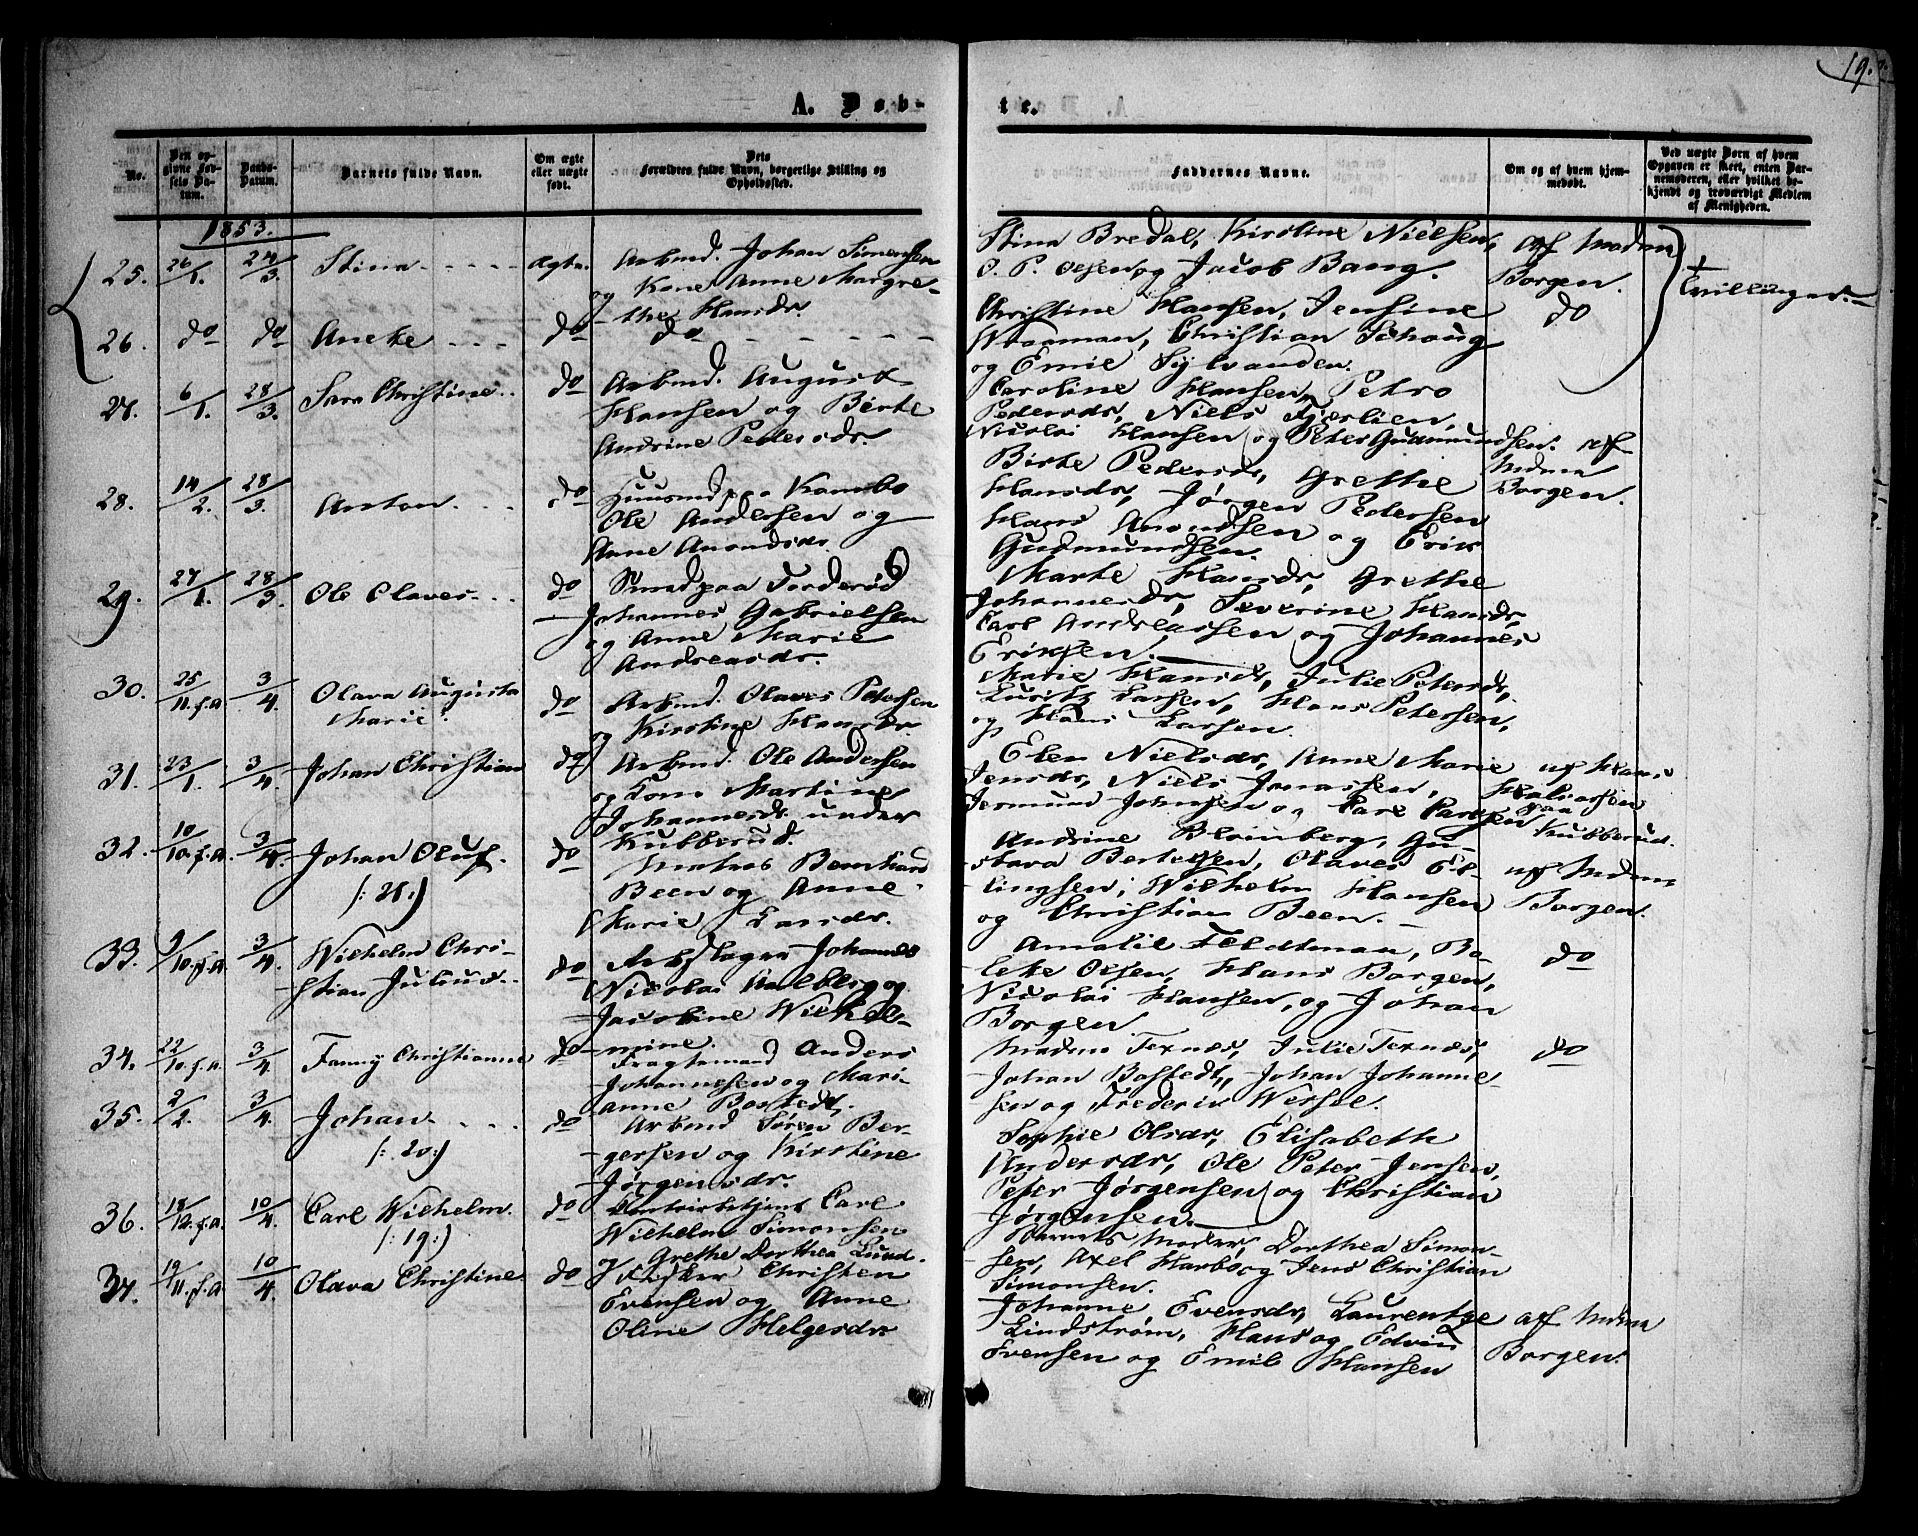 19.
A. Døb-
te.
No.
Den op-
givne Fød-
sels Da-
tum.
Daabs-
Datum.
Barnets fulde Navn.
Om ægte
eller uægte
født.
Dets
Forældres fulde Navn, borgerlige Stilling og
Opholdssted.
Faddernes Navne.
Om og af hvem hjem-
medøbt.
Ved uægte Børn af hvem
Opgaven er skeet, enten Bar-
nemoderen, eller hvilket be-
kjendt og troværdigt Medlem
af Menigheden.
1853.
25. 26/1. 24/3. Stina ægte. Arbmd. Johan Simensen
og Kone Anne Margre-
the Hansdr
Stina Bredal, Kirstine Nielsen,
O. P. Olsen og Jacob Bang.
af Madm
Borgen.
Tvillinger.
26. do do Aneke do do
Christine Hansen, Jensine
Christian Schoug
og Emil Sylvanden.
do
27. 6/1. 28/3. Sara Christine. do Arbmd. August
Hansen og Birte
Andrine Pedersdr.
Caroline Hansen, Petro
Pedersdr, Niels Fjerlien,
Nicolai Hansen og Peter Gudmundsen.
28. 14/2. 28/3. Anton do Huusmd paa Kambo
Ole Andersen og
Anne Amondsdr.
Birte Pedersdr, Grethe
Hansdr, Jørgen Pedersen
Hans Amundsen og Erik
Gudmundsen.
af
Mdma
Borgen.
29. 27/1. 28/3. Ole Olaves do Smed paa Torderød
Johannes Gabrielsen
og Anne Marie
Andreasdr.
Marte Hansdr, Grethe
Johannesdr, Severine Hansdr,
Carl Andreassen og Johannes
Eriksen.
30. 25/11. f.A 3/4. Olava Augusta
Marie. do Arbmd. Olaves Petersen
og Kirstine Hansdr.
Marie Hansdr, Julie Petersdr,
Lusitz Larsen, Hans Petersen,
og Hans Larsen.
31. 23/1. 3/4. Johan Christian do Arbmd. Ole Andersen
og Kone Martine
Johannesdr under
Kubberud.
Elen Nielsdr, Anne Marie
Jensdr, Niels Jonassen,
Jermund Johnsen og Carl Carlsen
af Hans
paa
Kubberud.
32. 10/10. f.A. 3/4. Johan Oluf.
/: 28 :/ do Matros Bernhard
Been og Anne
Marie Larsdr.
Andrine Blomberg, Gu-
stava Bertelsen, Olaves El-
lingsen, Wilhelm Hansen
og Christian Been.
af Mdm
Borgen.
33. 9/10. f.A. 3/4. Wilhelm Chri-
stian Julius. do Johannes
Nicolai Aalberg og
Jacobine Wilhel-
mine.
Amalie Feldtman, Bo-
lete Olsen, Hans Borgen,
Nicolai Hansen, og Johan
Borgen.
do
34. 22/10. f.A. 3/4. Fanny Christianne do Fragtemand Anders
Johannesen og Mari-
anne Bastedt.
Madm Texnæs, Julie Texnæs,
Johan Bastedt, Johan Johanne-
sen og Frederik Wessel.
do
35. 2/2. 3/4. Johan
/: 20 :/ do Arbmd Søren Ber-
gersen og Kirstine
Jørgensdr.
Sophie Olsdr, Elisabeth
Andersdr, Ole Peter Jensen,
Peter Jørgensen og Christian
Jørgensen.
36. 18/12. f.A. 10/4. Carl Wilhelm.
/: 19 :/ do Carl
Wilhelm Simonsen
og Grethe Dorthea Lund.
Barnets Moder, Dorthea Simon-
sen, Axel Harbo, og Jens Christian
Simonsen.
37. 19/11. f.A. 10/4. Olava Christine. do Fisker Christen
Evensen og Anne
Oline Helgesdr
Johanne Evensdr, Laurentze
Lindstrøm, Hans og Edvin
Evensen og Emil Hansen
af Mdma
Borgen.